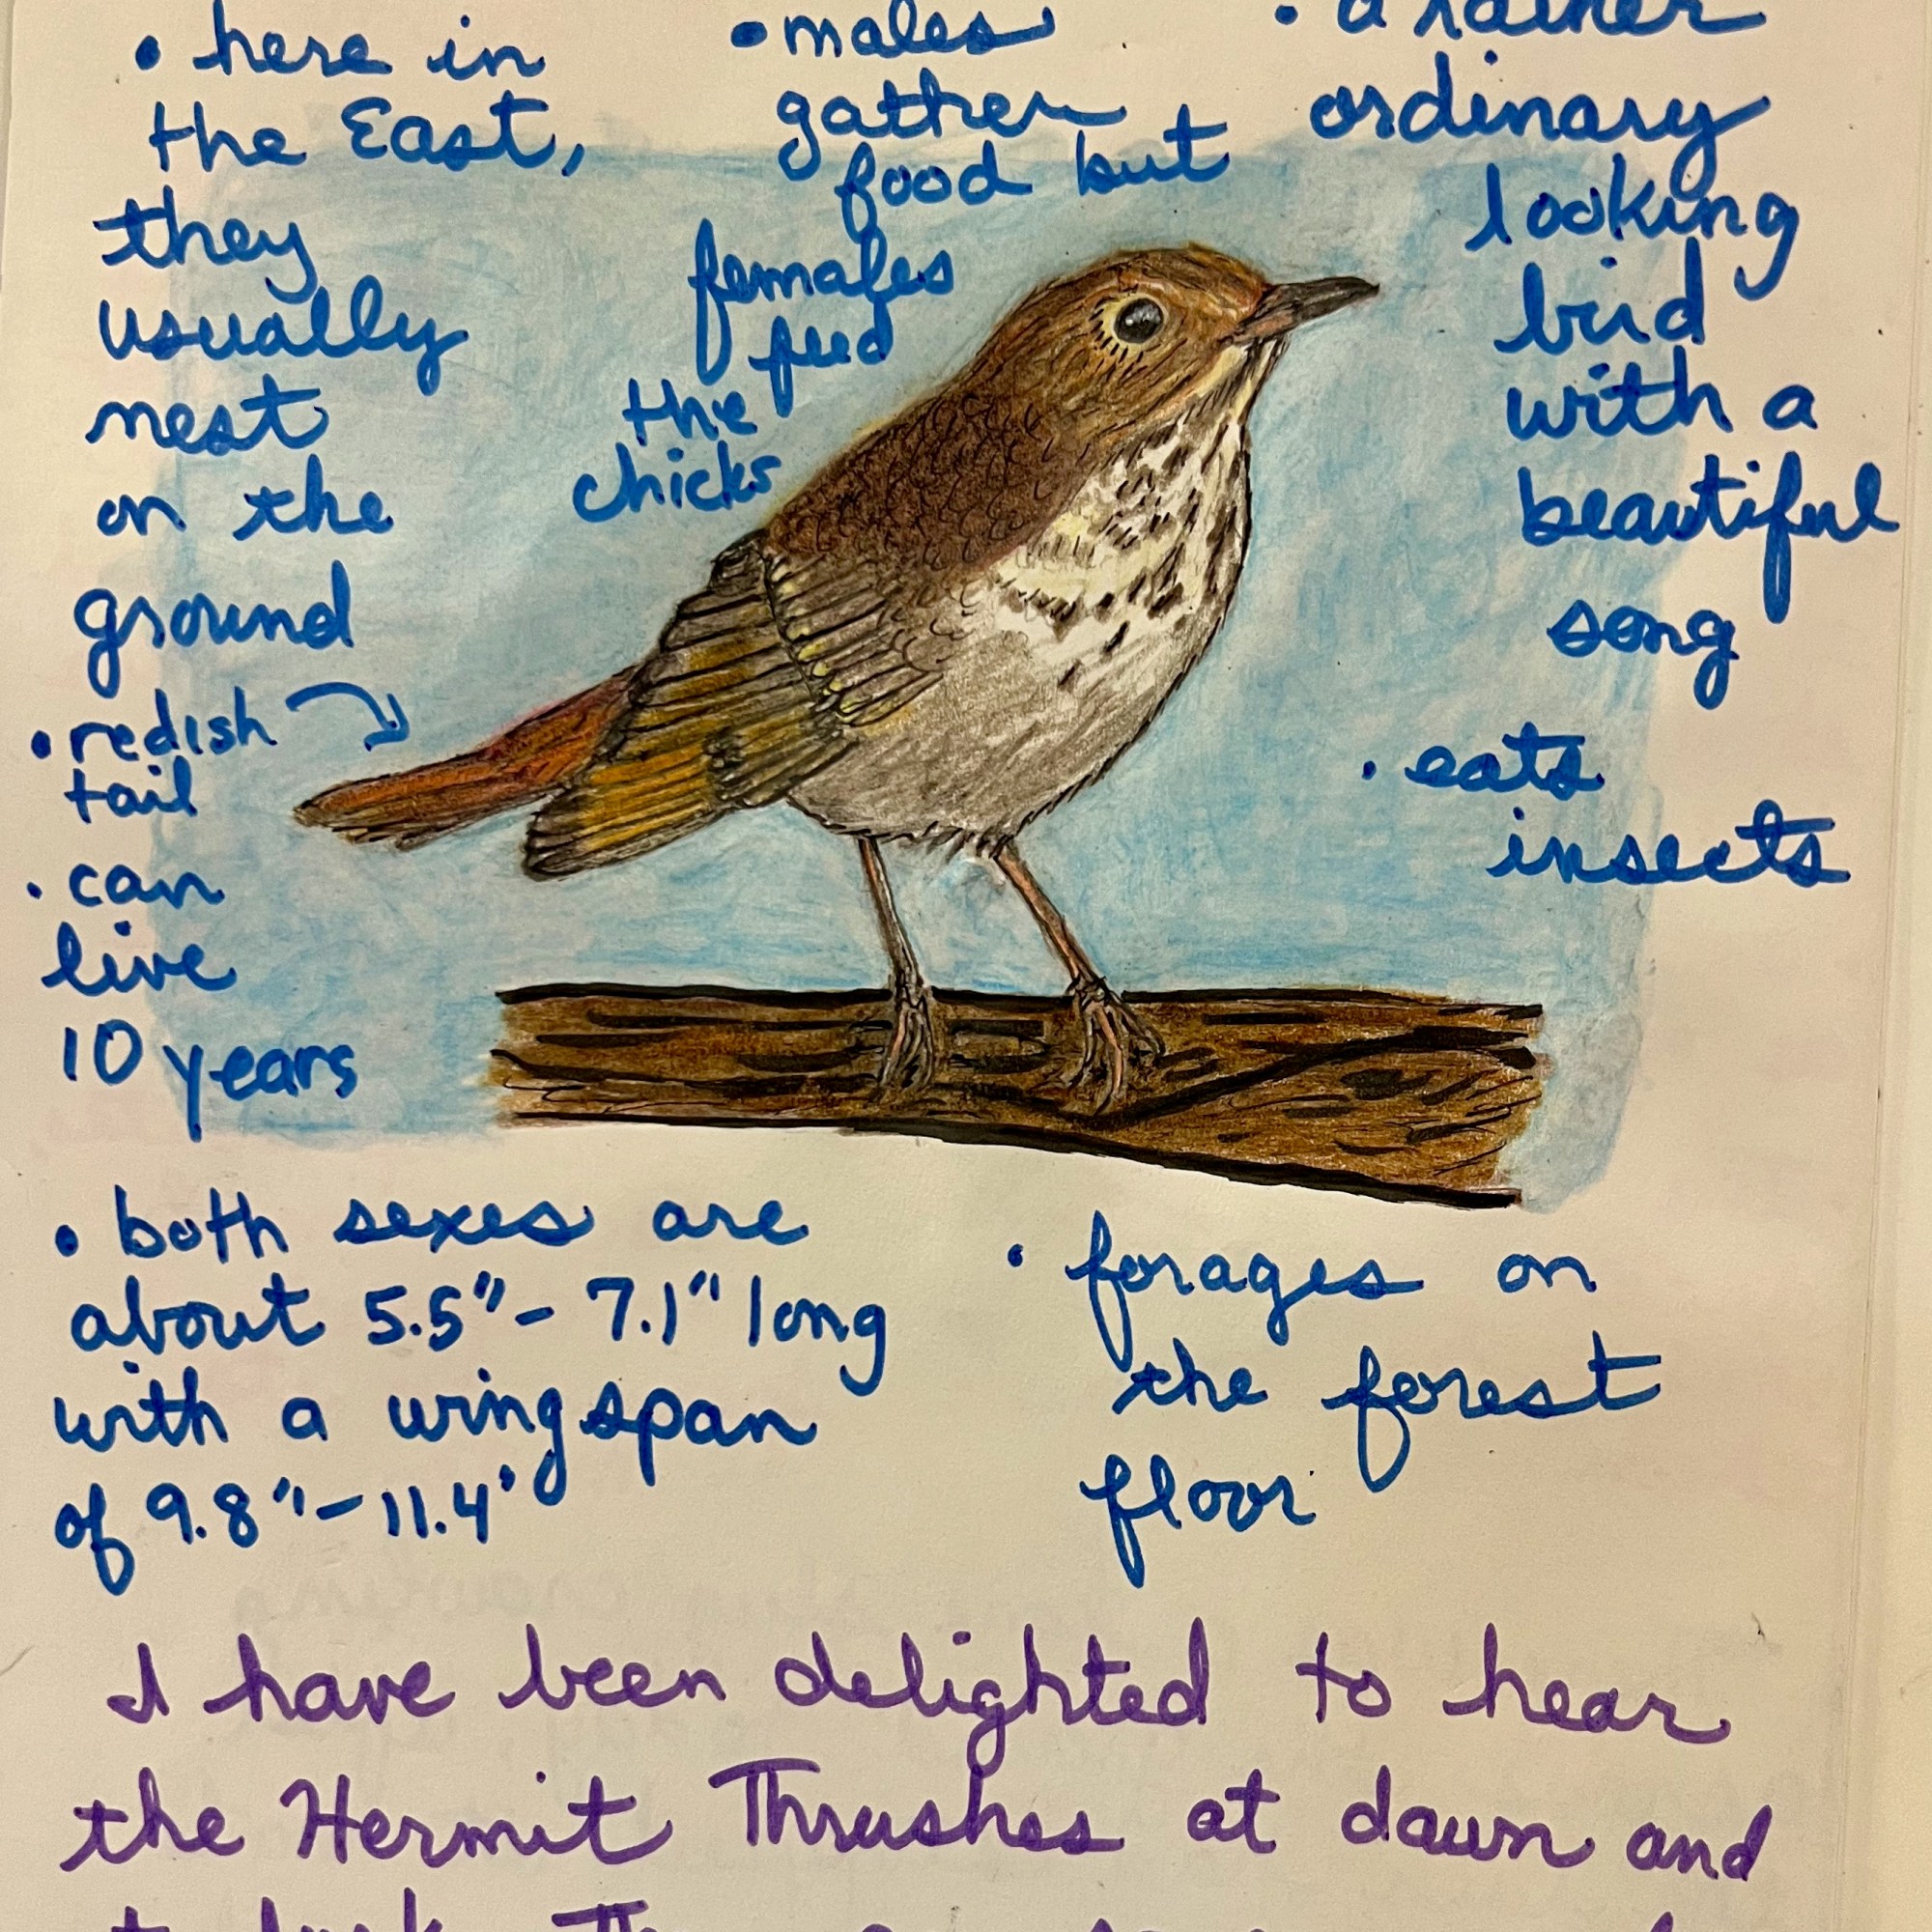 • here in
the East,
they
usually
nest
on the
ground
• redish
tail
• can
live
10 years
• males
gather
food but
females
feed
the
chicks
• a rather
ordinary
looking
bird
with a
beautiful
song
• eats
insects
• both sexes are
about 5.5"- 7.1" long
with a wingspan
of 9.8"-11.4'
• forages on
the forest
floor
I have been delighted to hear
the Hermit Thrushes at dawn and